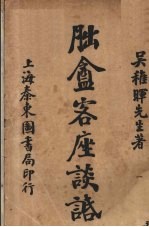 吳稚暉先生著
朏盦客座談話
上海泰東圖書局印行